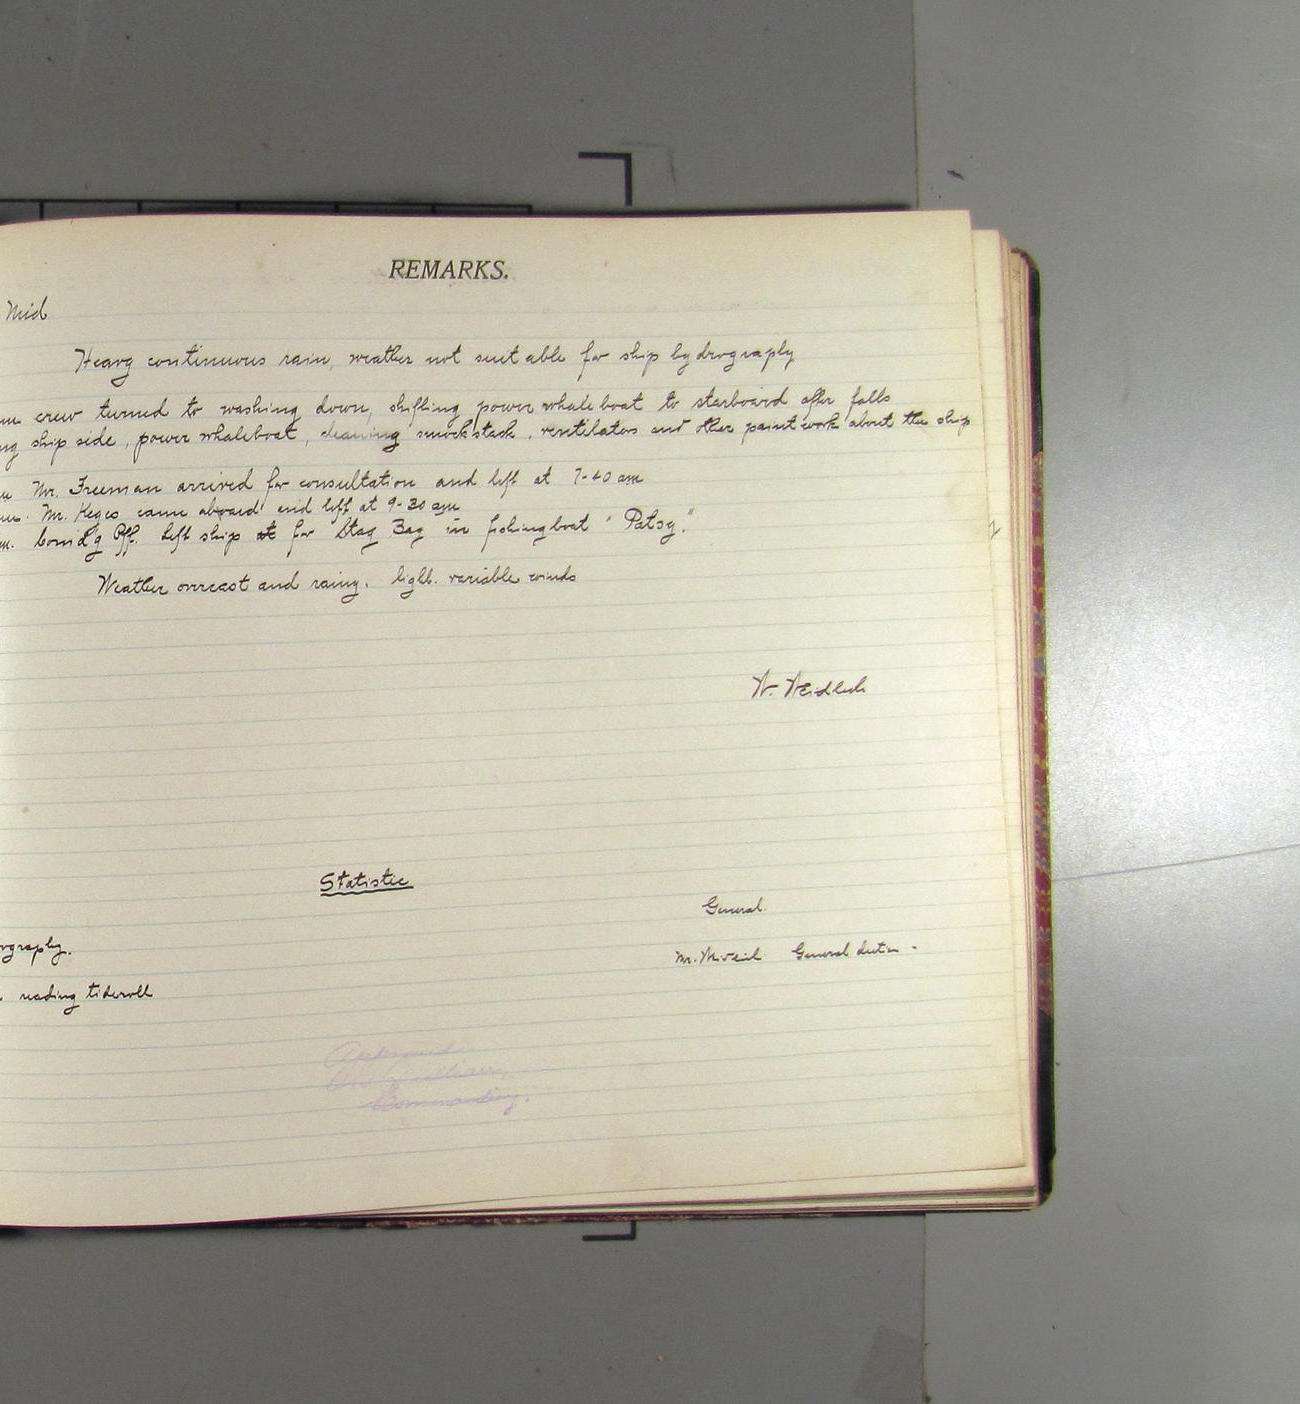 REMARKS.
Mid
Heavy continuous rain, weather not suitable for ship hydrography
crew turned to washing down, shifting power whaleboat to starboard after falls
ship side, power whaleboat, cleaning smokstack, ventilators and other paintwork about the ship
Mr. Freeman arrived for consultation and left at 7-40 am
Mr. came aboard and left at 9-30 am
Comd'g Off. left ship for Stag Bay in fishingboat "Patsy."
Weather overcast and rainy. light. variable winds
W. Weidlich
Statistic
General.
Mr. General
reading
Commanding.